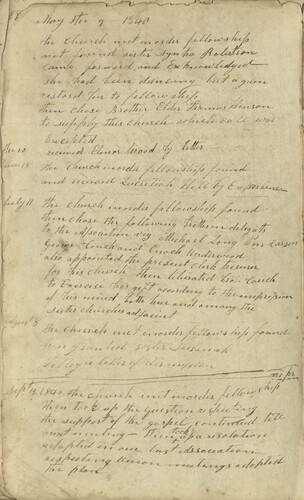 May the 9 1840
the Church met in order fellowship
not found sister Syntha
came forward and Acknowledged
she had been dancing but again
restored her to fellowship
then chose Brother Elder Thomas
to supply this church which call was
Excepted
received Elenor Wood by letter
June 13 the Church in order fellowship found
and received Lucretiah Hill by Experience
July 11 the Church in order fellowship found
then chose the following brethren delegates
to the Association viz Michael Long Wm Carson
George Couch and Enoch Underwood
also appointed the present clerk
for his church then liberated Bro. Couch
to Exercise his gift according to the impression
of his mind both here and among the
sister churches adjacent
August 8 the Church met in order fellowship found
granted sister Susanah
letter of dismission
Sept 12 1840 the church met in order fellowship
then took up the question respecting
the support of the gospel continued till
next meeting - Then took up a resolution
adopted in our last association
respecting union meetings adopted
the plan